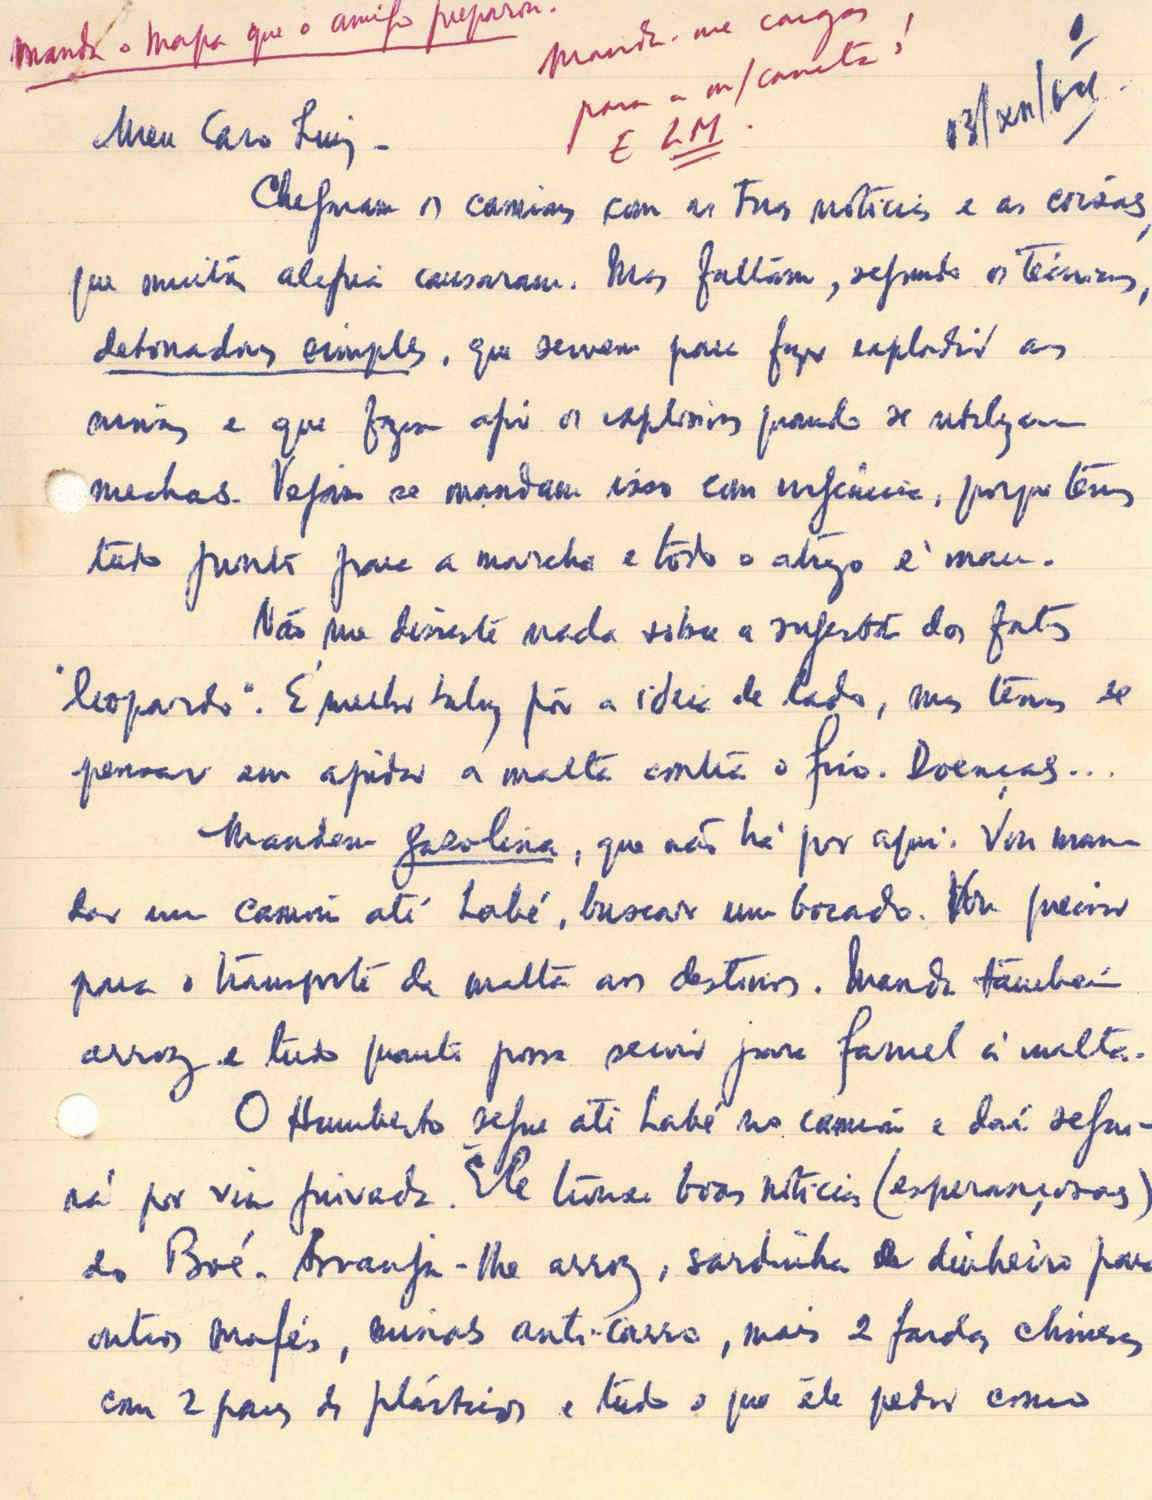 Manda o Mapa que o amigo preparou.
Manda-me cargas
para a m/caneta!
E LM.
13/XII/
Meu Caro Luiz -
Chegaram os camions com as tuas notícias e as coisas,
que muita alegria causaram. Mas faltam, segundo os técnicos,
detonadores simples, que servem para fazer explodir as
minas e que fazem agir os explosivos quando se utilizam
mechas. Vejam se mandam isso com urgência, porque temos
tudo pronto para a marcha e todo o atrazo é mau.
Não me disseste nada sobre a sugestão dos fatos
"leopardo". É melhor talvez pôr a ideia de lado, mas temos de
pensar em ajudar a malta contra o frio. Doenças...
Mandem gasolina, que não há por aqui. Vou man-
dar um camion até Labé, buscar um bocado. Vou precisar
para o transporte da malta aos destinos. Manda também
arroz e tudo quanto possa servir para farnel à malta.
O Humberto segue até Labé no camion e daí segui-
rá por via privada. Êle trouxe boas notícias (esperançosas)
do Boé. Arranja-lhe arroz, sardinha e dinheiro para
outros mafés, minas anti-carro, mais 2 fardas chinesas
com 2 pares de plásticos e tudo o que êle pedir como